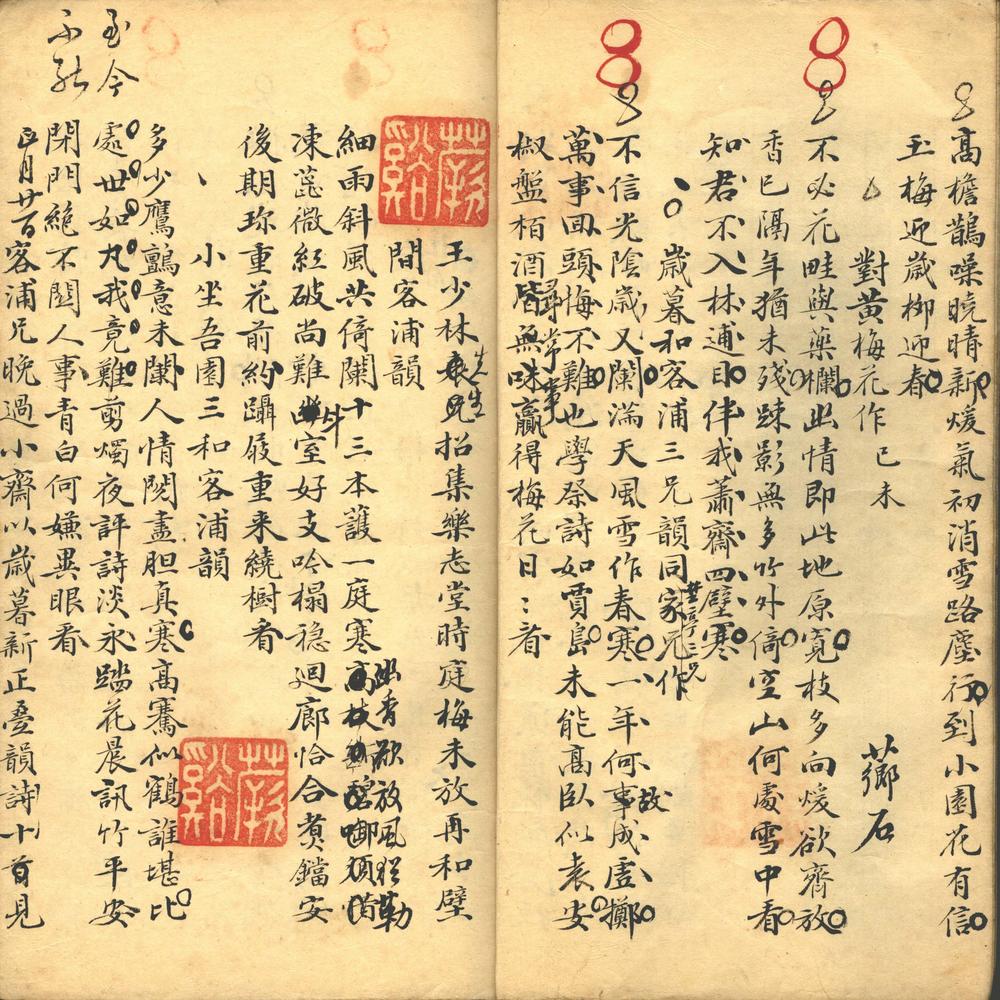 高檐鵲噪曉晴新煖氣初消雪路塵行到小園花有信
玉梅迎歲柳迎春
對黃梅花作 己未
薌石
不必花畦與藥欄此情即此地原寬枝多向煖欲齊放
香已隔年猶未殘踈影無多竹外倚空山何處雪中看
知君不入林逋目伴我蕭齋四壁寒
歲暮和客浦三兄韻同家兄作
不信光陰歲又闌滿天風雪作春寒一年何事成虛擲
故
萬事回頭悔不難也學祭詩如賈島未能高臥似袁安
椒盤栢酒皆無味贏得梅花日〻看
尋常事
王少林兄招集樂志堂時庭梅未放再和壁
先生
間客浦韻
細雨斜風共倚闌十三本護一庭寒
幽香欲放風猶勒
凍蕊微紅破尚難室好支吟榻穩迴廊恰合煮鐺安
斗
後期珎重花前約躡屐重来繞樹看
小坐吾園三和客浦韻
多少鷹鸇意未闌人情閱盡胆真寒高騫似鶴誰堪比
處世如丸我竟難剪燭夜評詩淡永踏花晨訊竹平安
閉門絶不関人事青白何嫌異眼看
至今
不能
正月廿客浦兄晚過小齋以歲暮新正叠韻詩十首見